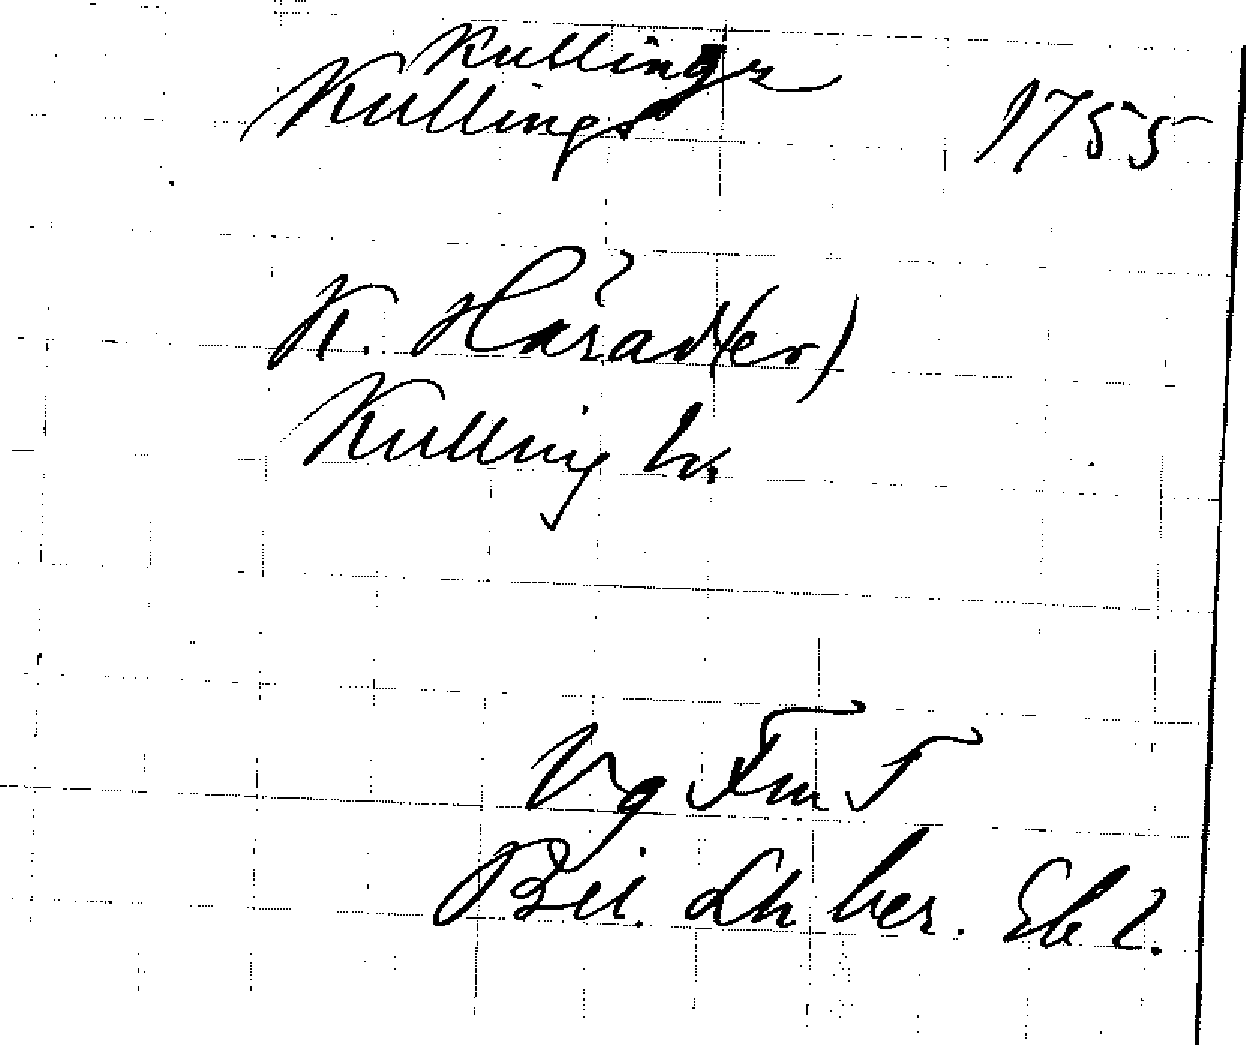 Kullings
Kullings 1755
K. Härad(er)
Kulling hr
Vg Fm T
Bil. Lh ber. Eb 2.